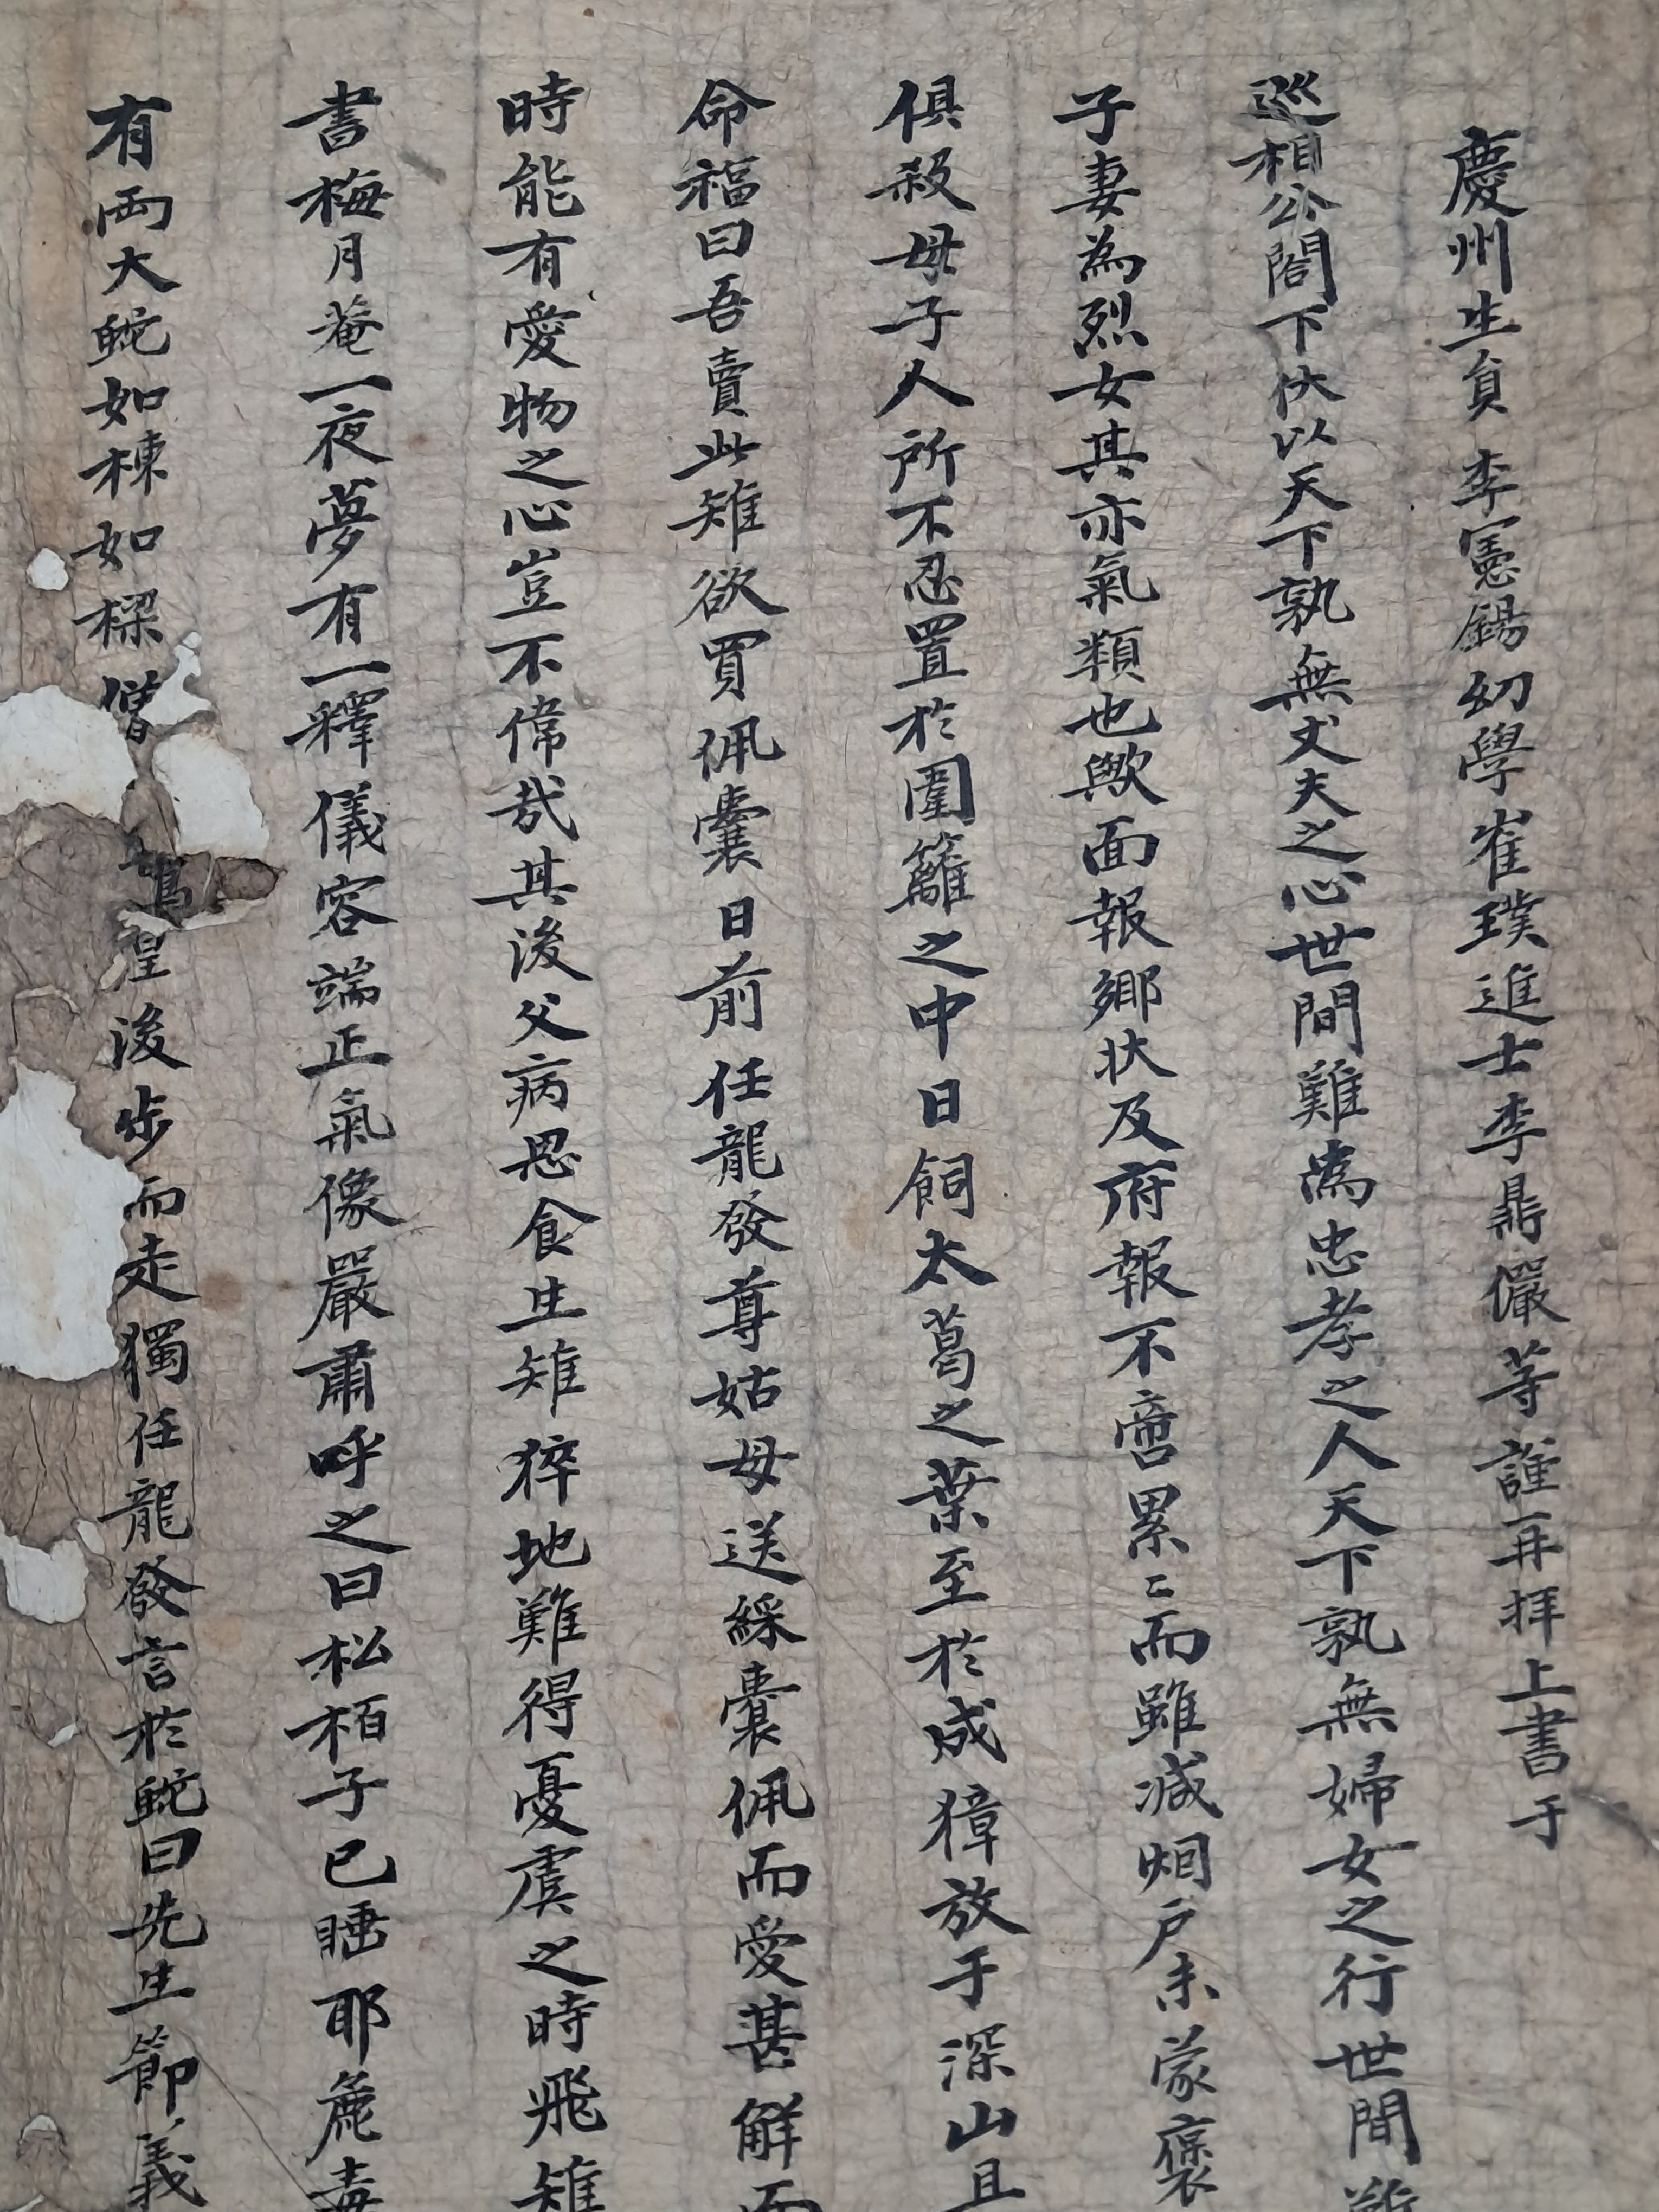 慶州生員李憲錫幼學崔璞進士李鼎儼等謹再拜上書于
巡相公閤下伏以天下孰無丈夫之心世間難為忠孝之人天下孰無婦女之行世間難
子妻為烈女其亦氣類也歟面報鄉狀及府報不啻累〻而雖减烟戶未蒙褒
俱殺母子人所不忍置於圍籬之中日飼太葛之葉至於成獐放于深山且
命福曰吾賣此雉欲買佩囊日前任龍發尊姑母送綵囊佩而愛甚解而
時能有愛物之心豈不偉哉其後父病思食生雉猝地難得憂虞之時飛雉
書梅月菴一夜夢有一釋儀容端正氣像嚴肅呼之曰松栢子已睡耶麁毒
有兩大蛇如棟如樑僧 惶後步而走獨任龍發言於蛇曰先生節義